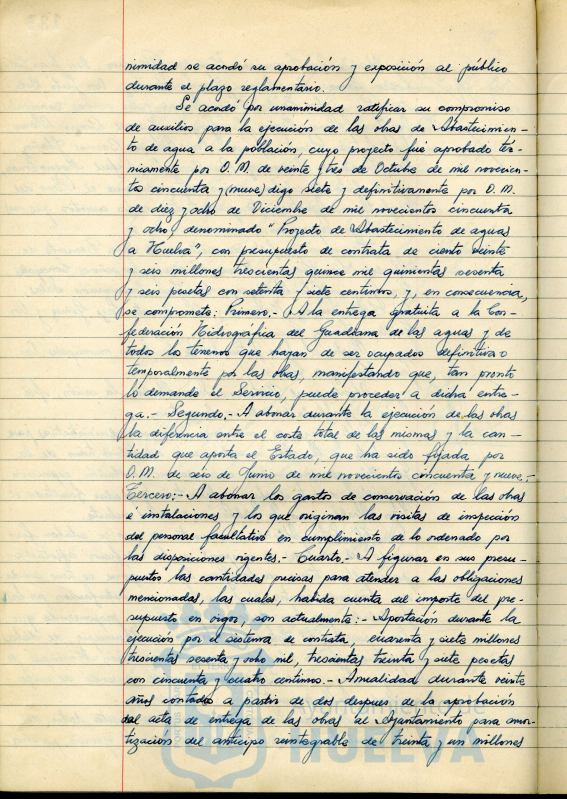 nimidad se acordó su aprobación y exposición al público
durante el plazo reglamentario.
Se acordó por unanimidad ratificar su compromiso
de auxilios para la ejecución de las obras de Abastecimien-
to de agua a la población, cuyo proyecto fué aprobado téc-
nicamente por O.M. de veinte y tres de Octubre de mil novecien-
tos cincuenta y (nueve) digo siete y definitivamente por O.M.
de diez y ocho de Diciembre de mil novecientos cincuenta
y ocho, denominado "Proyecto de Abastecimiento de aguas
a Huelva", con presupuesto de contrata de ciento veinte
y seis millones trescientas quince mil quinientas sesenta
y seis pesetas con setenta y siete centimos, y, en consecuencia,
se compromete: Primero.- A la entrega gratuita a la Con-
federación Hidrográfica del Guadiana de las aguas y de
todos los terrenos que hayan de ser ocupados definitiva o
temporalmente por las obras, manifestando que, tan pronto
lo demande el Servicio, puede proceder a dicha entre-
ga.- Segundo.- A abonar durante la ejecución de las obras
la diferencia entre el coste total de las mismas y la can-
tidad que aporta el Estado, que ha sido fijada por
O.M. de seis de Junio de mil novecientos cincuenta y nueve.-
Tercero:- A abonar los gastos de conservación de las obras
é instalaciones y los que originan las visitas de inspección
del personal facultativo en cumplimiento de lo ordenado por
las disposiciones vigentes.- Cuarto.- A figurar en sus presu-
puestos las cantidades precisas para atender a las obligaciones
mencionadas, las cuales, habida cuenta del importe del pre-
supuesto en vigor, son actualmente:- Aportación durante la
ejecución por el sistema de contrata, cuarenta y siete millones
trescientas sesenta y ocho mil, trescientas treinta y siete pesetas
con cincuenta y cuatro centimos.- Anualidad durante veinte
años contados a partir de dos despues de la aprobación
del acta de entrega de las obras al Ayuntamiento para amor-
tización del anticipo reintegrable de treinta y un millones
HUELVA